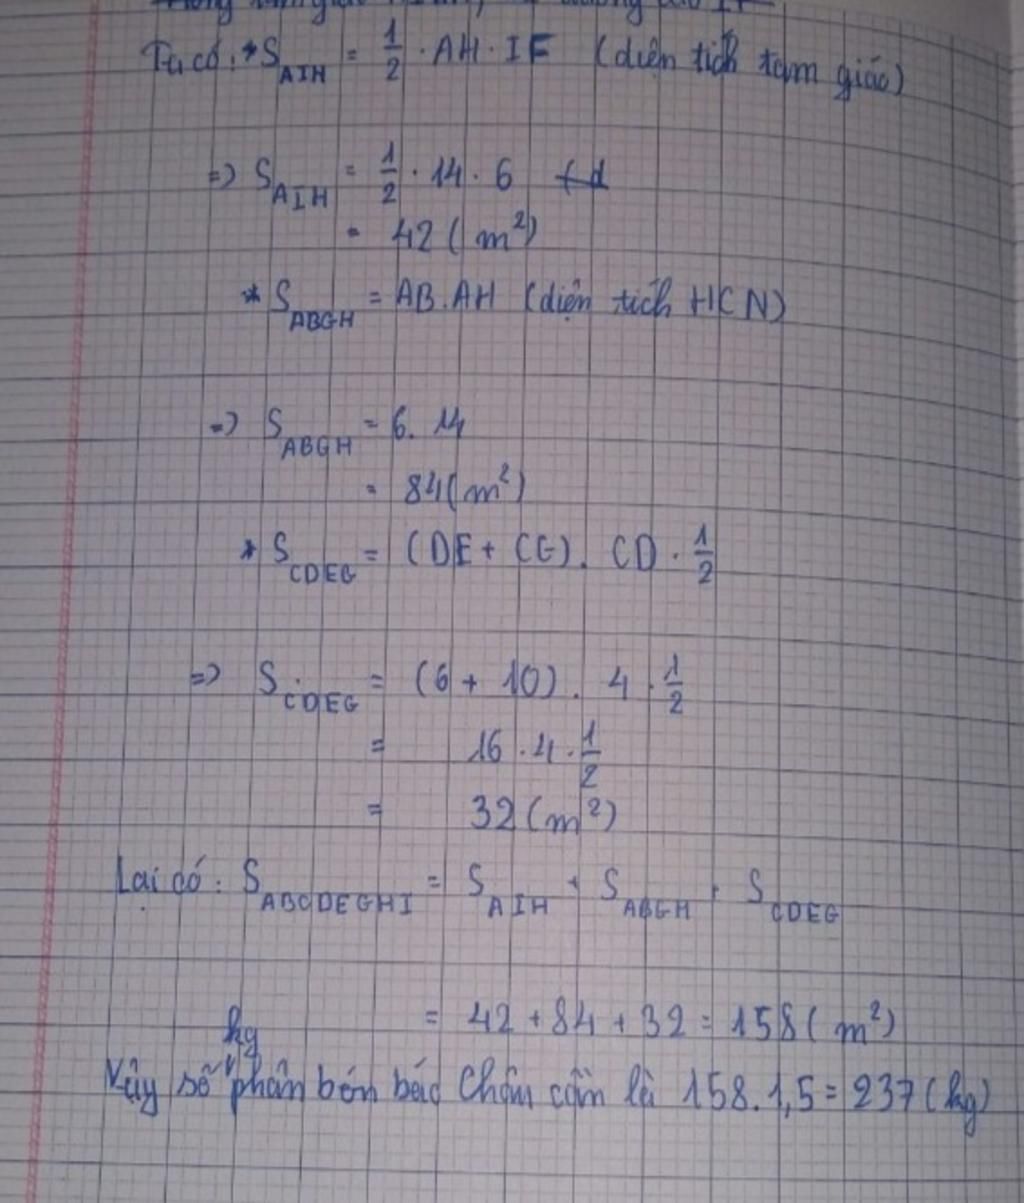 Ta có: * S_AIH = 1/2 · AH · IF (diện tích tam giác)
=> S_AIH = 1/2 · 14 · 6
= 42 (m²)
* S_ABGH = AB . AH (diện tích HCN)
=> S_ABGH = 6 . 14
= 84 (m²)
* S_CDEG = (DE + CG) . CD · 1/2
=> S_CDEG = (6 + 10) . 4 · 1/2
= 16 · 4 · 1/2
= 32 (m²)
Lại có: S_ABCDEGHI = S_AIH + S_ABGH + S_CDEG
= 42 + 84 + 32 = 158 (m²)
Vậy số kg phân bón bác Châu cần là 158 . 1,5 = 237 (kg)